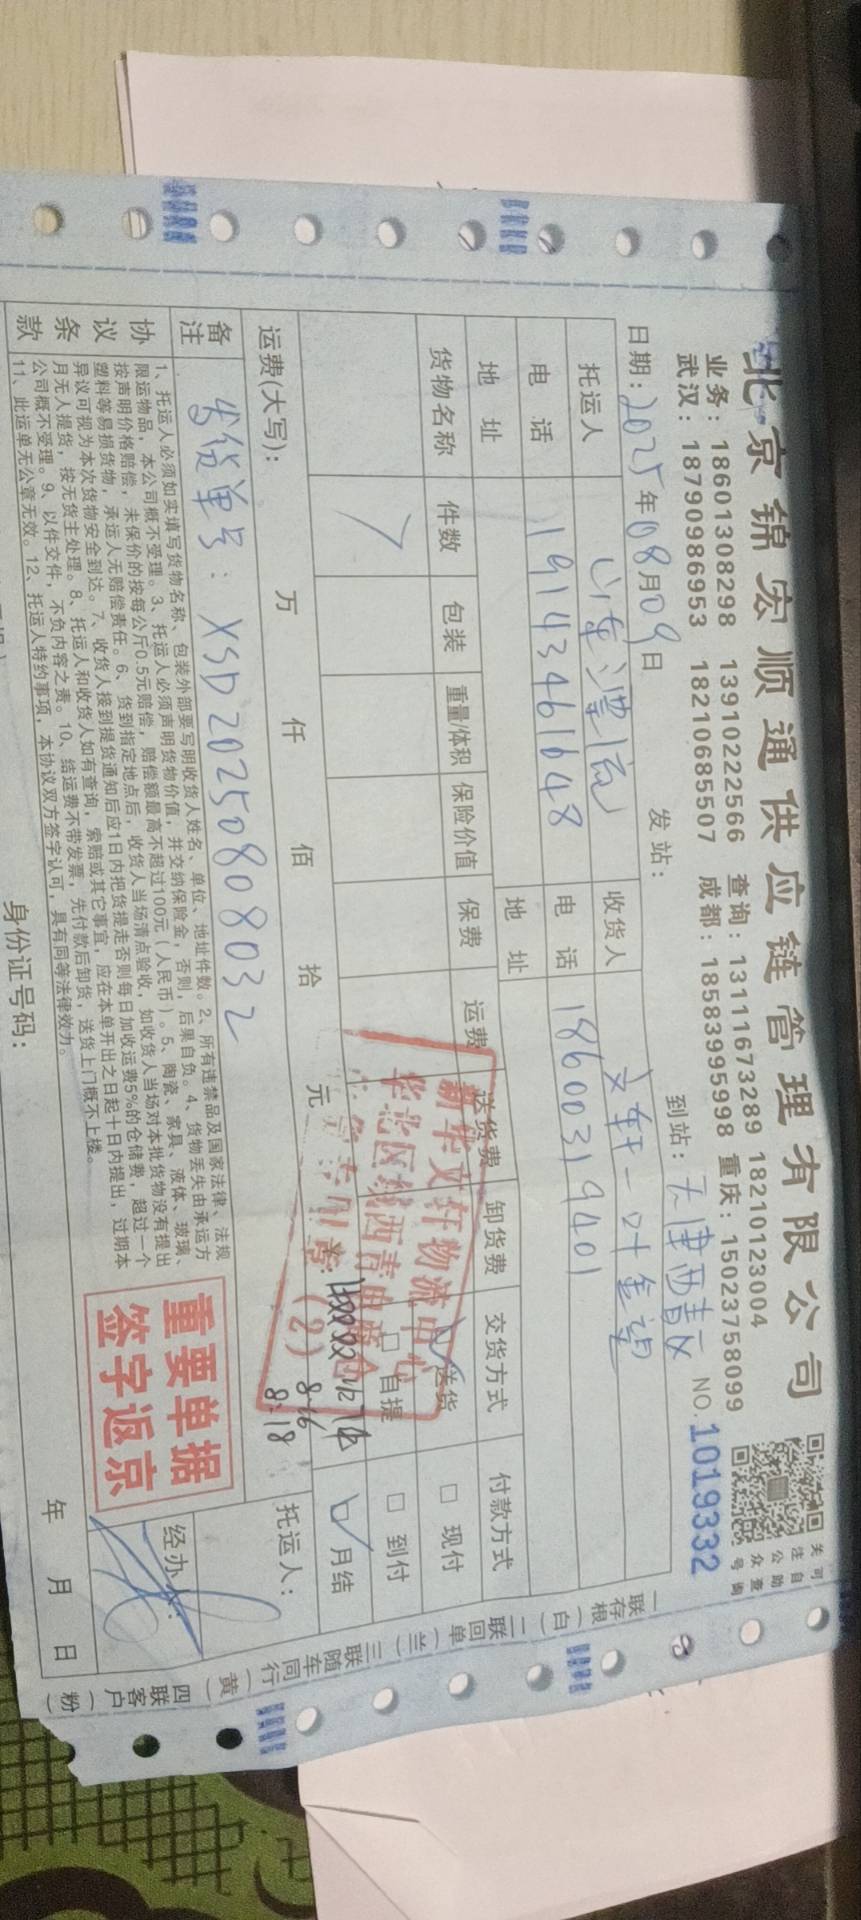 北京锦宏顺通供应链管理有限公司
业务：18601308298 13910222566 查询：13111673289 18210123004
武汉：18790986953 18210685507 成都：18583995998 重庆：15023758099
关注公众号
可自助查询
日期：2025年08月09日 发站： 到站：天津西青区 NO.1019332
托运人 山东 收货人 文轩一叶
电话 19143461648 电话 18600319401
地址 地址
货物名称 件数 包装 重量/体积 保险价值 保费 运费 送货费 卸货费 交货方式 付款方式
送货 □ 现付
□ 自提 □ 到付
月结
新华文轩物流中心
华北区 西青
(2)
8.16
8.18
运费(大写)： 万 仟 佰 拾 元
托运人：
备注 发货单号：XSD20250808032
协议条款
1、托运人必须如实填写货物名称、包装外部要写明收货人姓名、单位、地址件数。2、所有违禁品及国家法律、法规
限运物品，本公司概不受理。3、托运人必须声明货物价值，并交纳保险金，否则，后果自负。4、货物丢失由承运方
按声明价格赔偿，未保价的按每公斤0.5元赔偿，赔偿额最高不超过100元（人民币）。5、陶瓷、家具、液体、玻璃、
塑料等易损货物，承运人无赔偿责任。6、货到指定地点后，收货人当场清点验收，如收货人当场对本批货物没有提出
异议可视为本次货物安全到达。7、收货人接到提货通知后应1日内把货提走否则每日加收运费5%的仓储费，超过一个
月无人提货，按无货主处理。8、托运人和收货人如有查询，索赔或其它事宜，应在本单开出之日起十日内提出，过期本
公司概不受理。9、以件交件，不负内容之责。10、结运费不带发票，先付款后卸货，送货上门概不上楼。
11、此运单无公章无效。12、托运人特约事项，本协议双方签字认可，具有同等法律效力。
重要单据
签字返京
经办人：
身份证号码： 年 月 日
一联存根（白） 二联回单（兰） 三联随车同行（黄） 四联客户（粉）